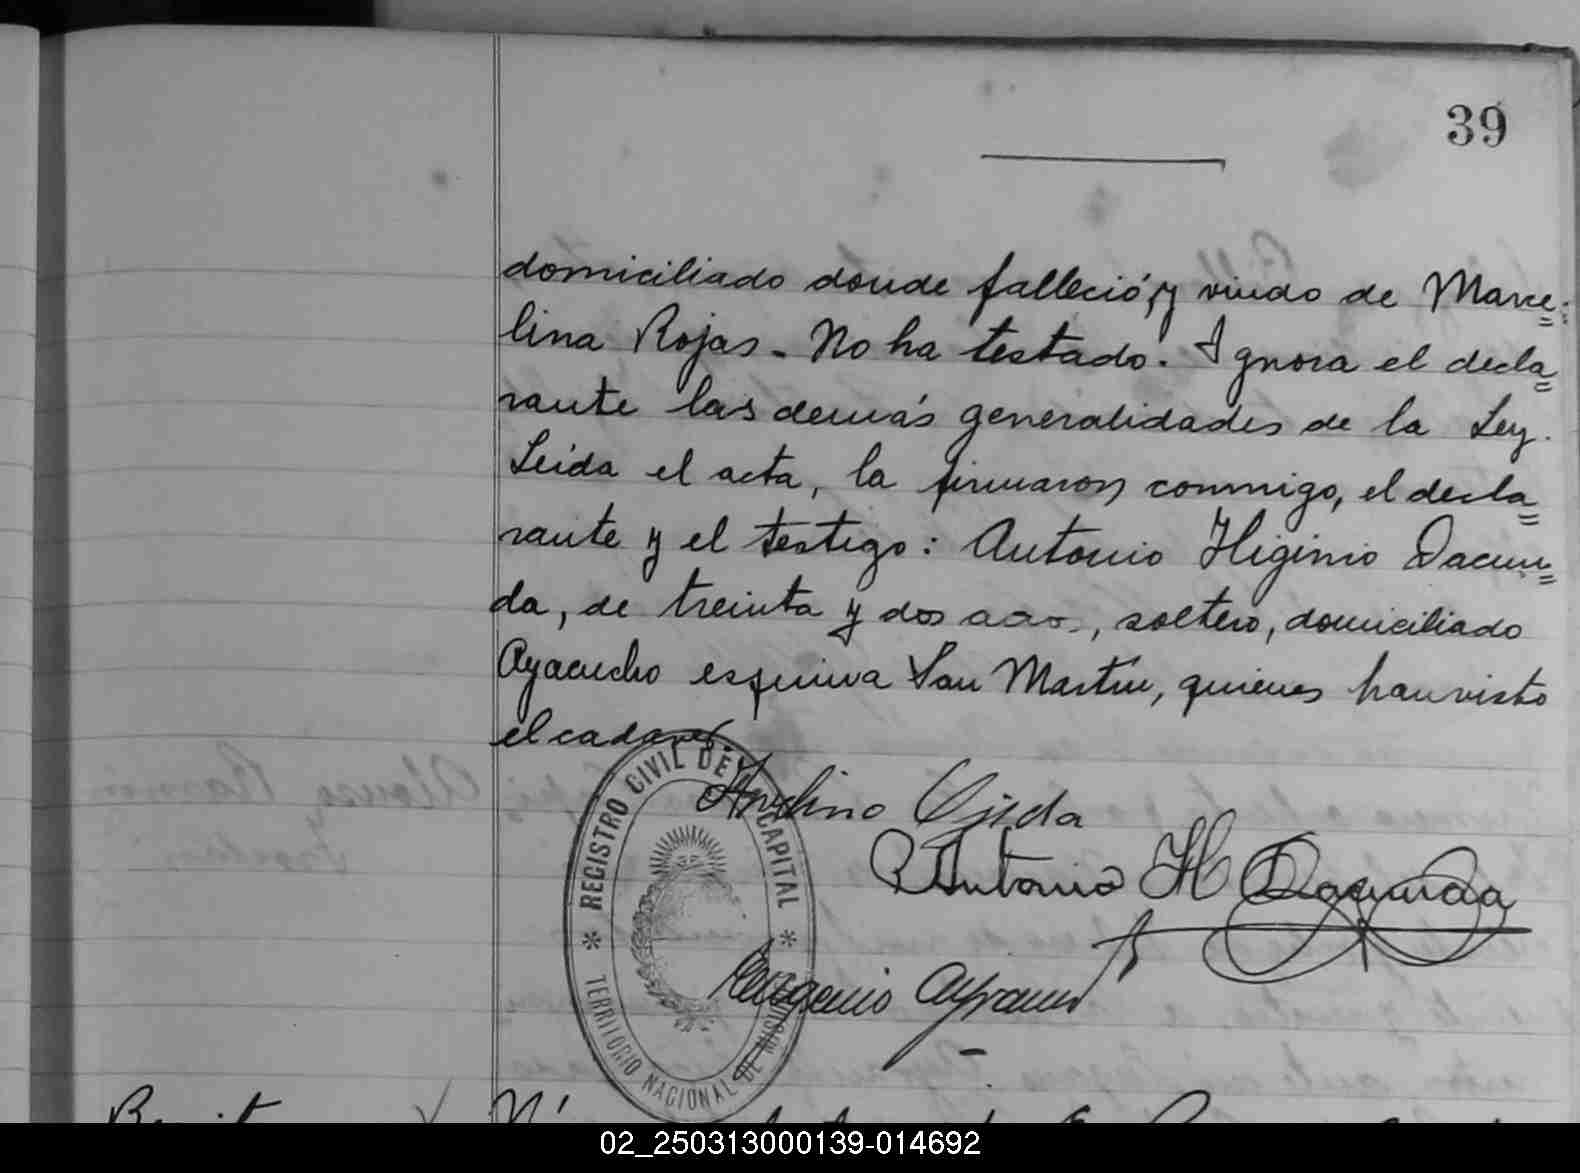 39
domiciliado donde falleció, y viudo de Marce=
lina Rojas. No ha testado. Ignora el decla=
rante las demás generalidades de la Ley.
Leída el acta, la firmaron conmigo, el decla=
rante y el testigo: Antonio Higinio Dacun=
da, de treinta y dos años, soltero, domiciliado
Ayacucho esquina San Martín, quienes han visto
el cadaver.
Ojeda
Antonio H Dacunda
Eugenio
REGISTRO CIVIL DE CAPITAL
TERRITORIO NACIONAL DE MISIONES
02_250313000139-014692